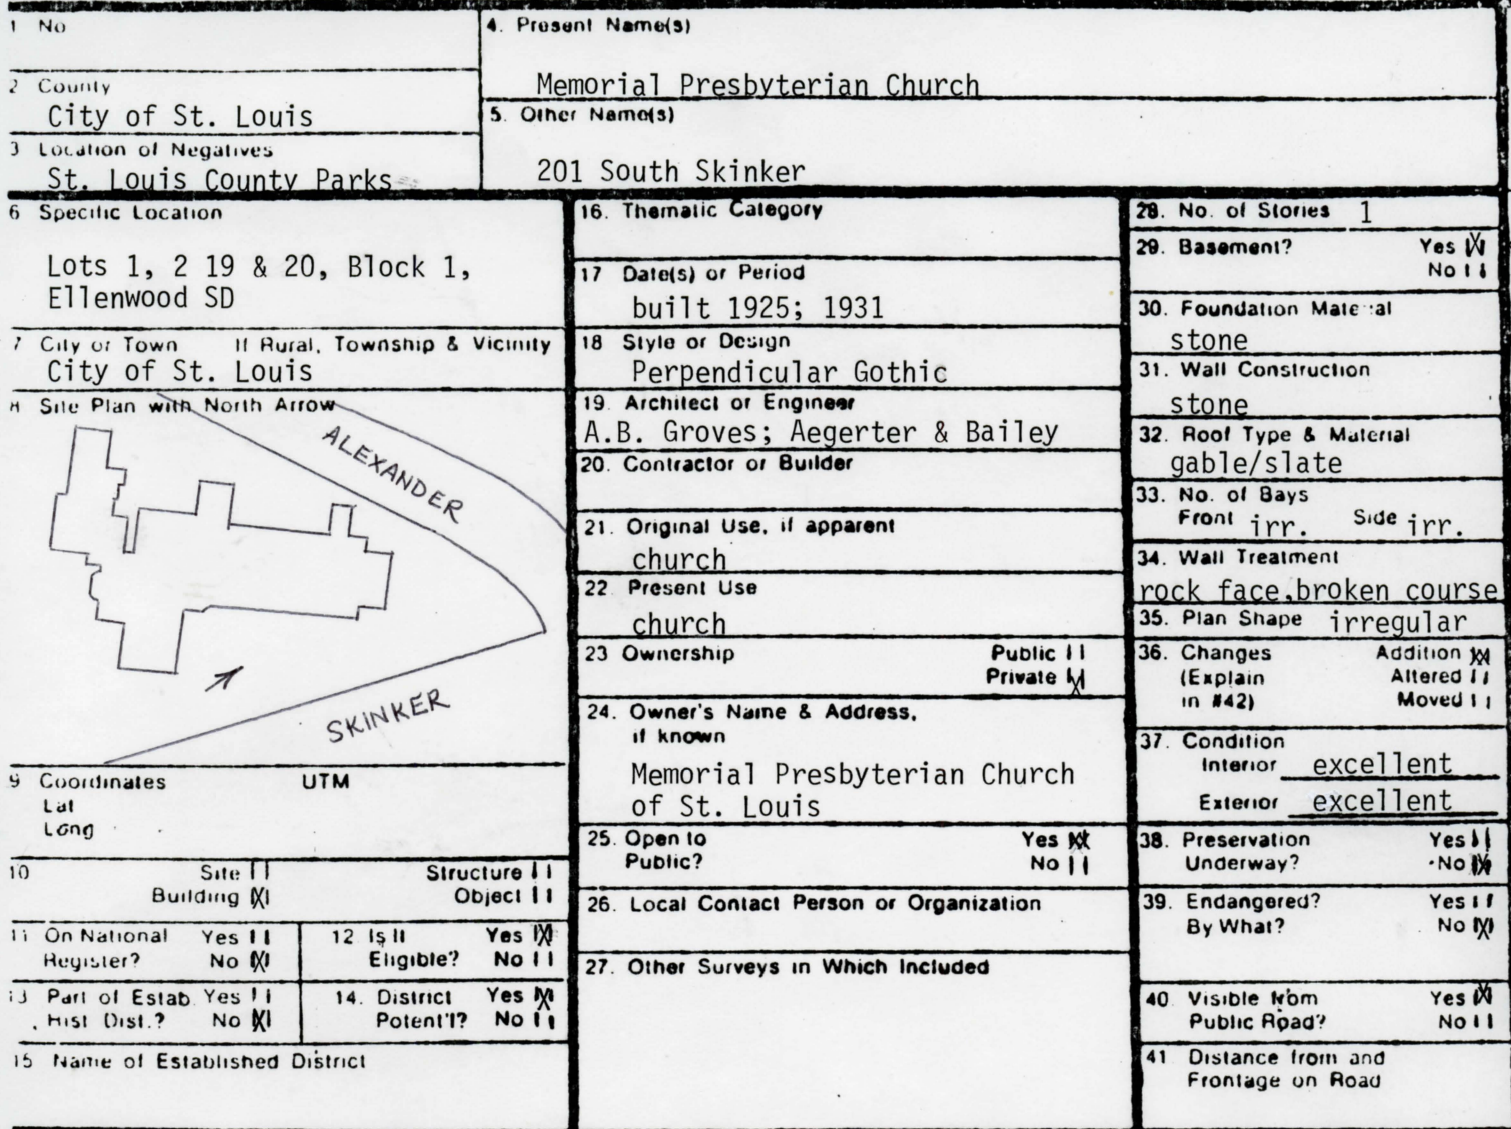 1 No
2 County
City of St. Louis
3 Location of Negatives
St. Louis County Parks
4. Present Name(s)
Memorial Presbyterian Church
5. Other Name(s)
201 South Skinker
6 Specific Location
Lots 1, 2 19 & 20, Block 1,
Ellenwood SD
7 City or Town If Rural, Township & Vicinity
City of St. Louis
8 Site Plan with North Arrow
ALEXANDER
SKINKER
9 Coordinates UTM
Lat
Long
10 Site Structure
Building X Object
11 On National Yes
Register? No X
12 Is It Yes X
Eligible? No
13 Part of Estab. Yes
Hist Dist.? No X
14. District Yes X
Potent'l? No
15 Name of Established District
16. Thematic Category
17 Date(s) or Period
built 1925; 1931
18 Style or Design
Perpendicular Gothic
19. Architect or Engineer
A.B. Groves; Aegerter & Bailey
20. Contractor or Builder
21. Original Use, if apparent
church
22 Present Use
church
23 Ownership Public
Private X
24. Owner's Name & Address,
if known
Memorial Presbyterian Church
of St. Louis
25. Open to Yes XX
Public? No
26. Local Contact Person or Organization
27. Other Surveys in Which Included
28. No. of Stories 1
29. Basement? Yes X
No
30. Foundation Material
stone
31. Wall Construction
stone
32. Roof Type & Material
gable/slate
33. No. of Bays
Front irr. Side irr.
34. Wall Treatment
rock face,broken course
35. Plan Shape irregular
36. Changes Addition XX
(Explain Altered
in #42) Moved
37. Condition
Interior excellent
Exterior excellent
38. Preservation Yes
Underway? No X
39. Endangered? Yes
By What? No X
40. Visible from Yes X
Public Road? No
41 Distance from and
Frontage on Road